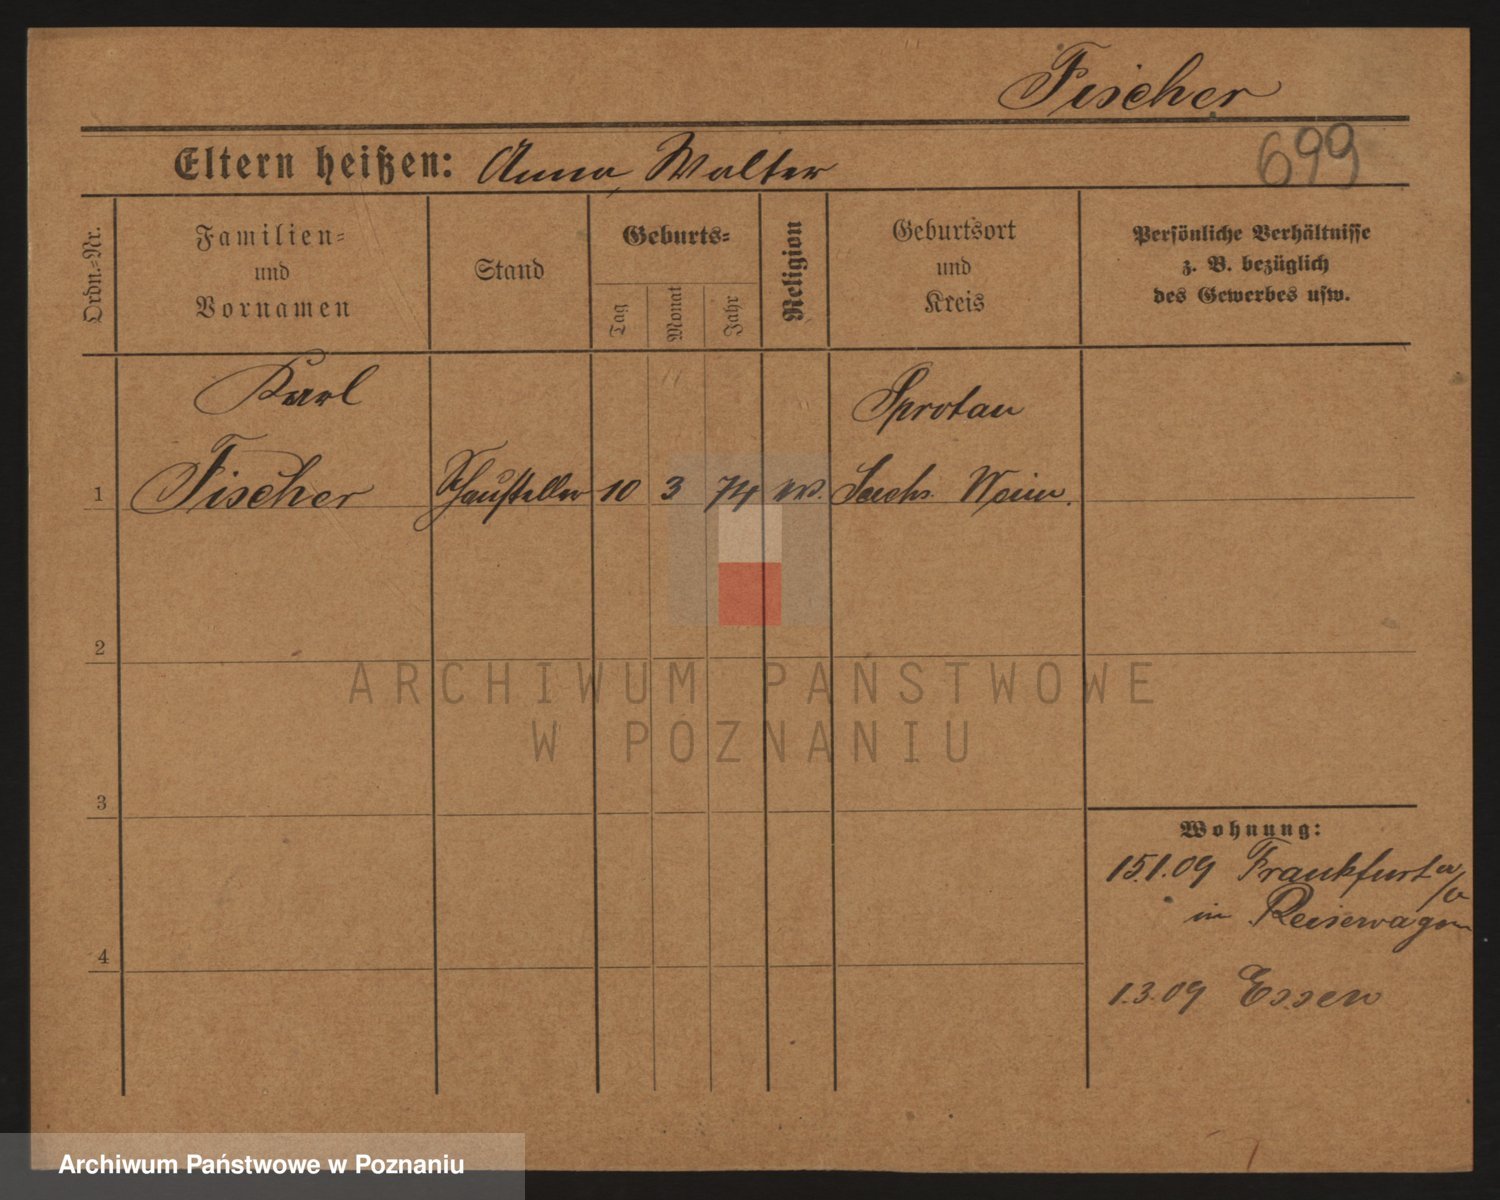 Fischer
699
Eltern heißen: Anna, Walter
Ordn.-Nr.
Familien-
und
Vornamen
Stand
Geburts-
Tag
Monat
Jahr
Religion
Geburtsort
und
Kreis
Persönliche Verhältnisse
z. B. bezüglich
des Gewerbes usw.
Karl
Sprotau
1 Fischer Schausteller 10 3 74 Sachs. Weim.
2
3
4
Wohnung:
15.1.09 Frankfurt a/O
in Reisewagen
1.3.09 Essen
ARCHIWUM PAŃSTWOWE
W POZNANIU
Archiwum Państwowe w Poznaniu